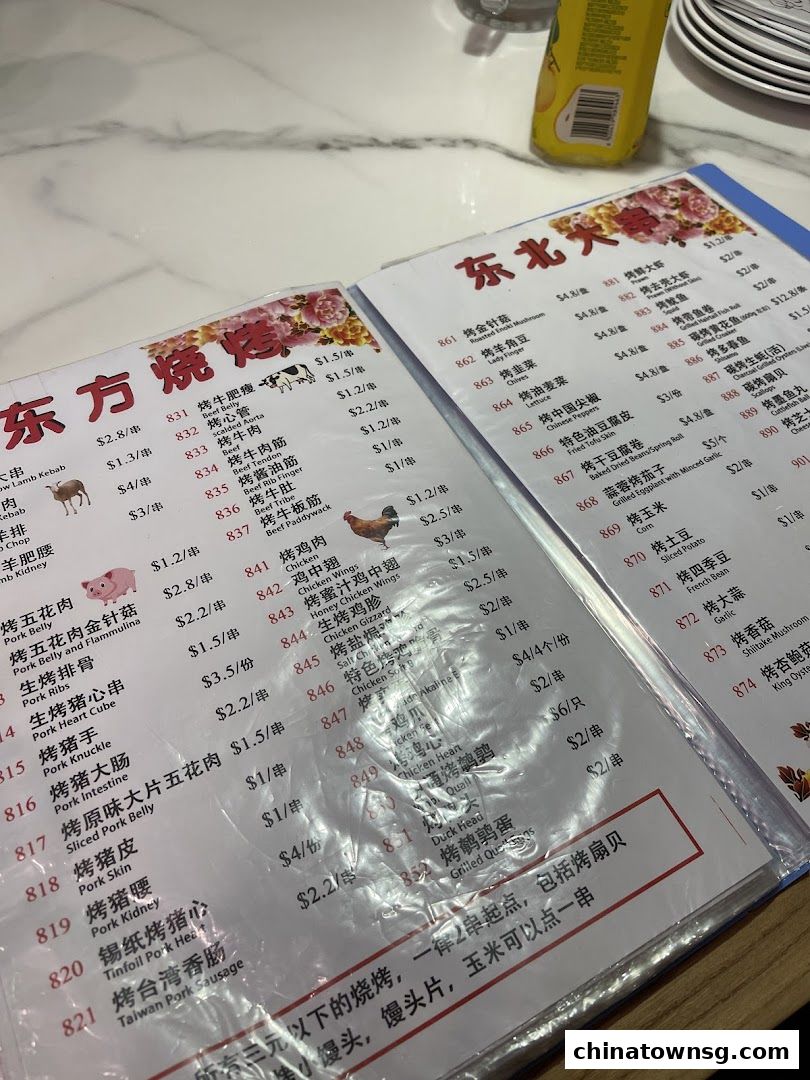 东方烧烤
$2.8/串
$1.3/串
$4/串
$3/串
烤五花肉
Pork Belly
$1.2/串
烤五花肉金针菇
Pork Belly and Flammulina
$2.8/串
生烤排骨
Pork Ribs
$2.2/串
生烤猪心串
Pork Heart Cube
$1.5/串
815 烤猪手
Pork Knuckle
$3.5/份
816 烤猪大肠
Pork Intestine
$2.2/串
817 烤原味大片五花肉
Sliced Pork Belly
$1.5/串
818 烤猪皮
Pork Skin
$1/串
819 烤猪腰
Pork Kidney
$1/串
820 锡纸烤猪心
Tinfoil Pork Heart
$4/份
821 烤台湾香肠
Taiwan Pork Sausage
$2.2/串
831 烤牛肥瘦
Beef Belly
$1.5/串
832 烤心管
scalded Aorta
$1.5/串
833 烤牛肉
Beef
$1.2/串
834 烤牛肉筋
Beef Tendon
$2.2/串
835 烤酱油筋
Beef Rib Finger
$1.2/串
836 烤牛肚
Beef Tribe
$1/串
837 烤牛板筋
Beef Paddywack
$1/串
841 烤鸡肉
Chicken
$1.2/串
842 鸡中翅
Chicken Wings
$2.5/串
843 烤蜜汁鸡中翅
Honey Chicken Wings
$3/串
844 生烤鸡胗
Chicken Gizzard
$1.5/串
845
$2.5/串
846
$2/串
847
$1/串
848
$4/4个/份
849
Chicken Heart
$2/串
$6/只
Duck Head
$2/串
烤鹌鹑蛋
$2/串
一律2串起点，包括烤扇贝
馒头片，玉米可以点一串
东北大串
861 烤金针菇
Roasted Enoki Mushroom
$4.8/盒
862 烤羊角豆
Lady Finger
$4.8/盒
863 烤韭菜
Chives
$4.8/盒
864 烤油麦菜
Lettuce
$4.8/盒
865 烤中国尖椒
Chinese Peppers
866 特色油豆腐皮
Fried Tofu Skin
$3/份
867 烤干豆腐卷
Baked Dried Beans/Spring Roll
$4.8/盒
868 蒜蓉烤茄子
Grilled Eggplant with Minced Garlic
$5/个
869 烤玉米
Corn
$2/串
870 烤土豆
Sliced Potato
$1/串
871 烤四季豆
French Bean
$1/串
872 烤大蒜
Garlic
873 烤香菇
Shiitake Mushroom
874 烤杏鲍菇
881 烤鲜大虾
Prawn
$1.2/串
882 烤去壳大虾
Prawn (Without Skin)
$2/串
883 烤鱿鱼
Squid
$2/串
884 烤带鱼卷
Grilled Hairtail Fish Roll
$2/串
885
$12.8/条
886 烤多春鱼
Shisamo
887
888
Scallops
889
890
chinatownsg.com